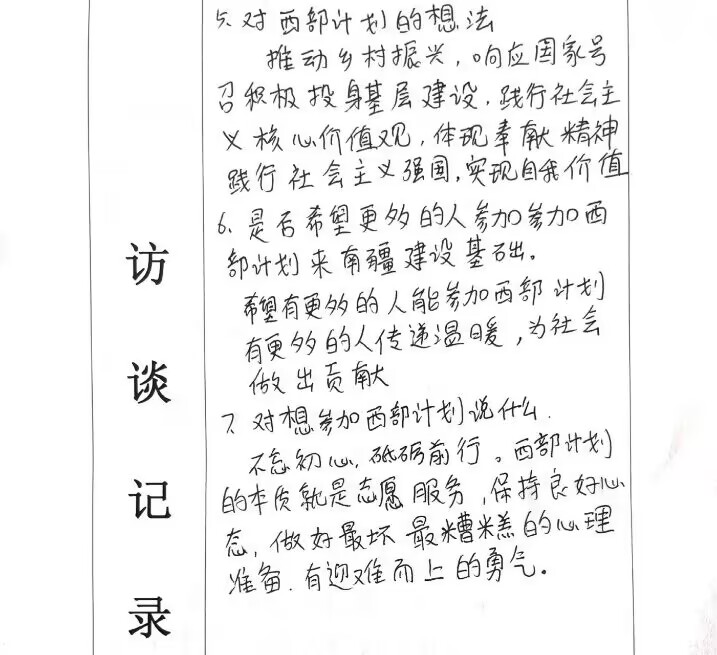 访谈记录
5、对西部计划的想法
推动乡村振兴,响应国家号
召积极投身基层建设.践行社会主
义核心价值观,体现奉献精神
践行社会主义强国,实现自我价值
6、是否希望更多的人参加参加西
部计划来南疆建设基础。
希望有更多的人能参加西部计划
有更多的人传递温暖,为社会
做出贡献
7、对想参加西部计划说什么.
不忘初心,砥砺前行。西部计划
的本质就是志愿服务,保持良好心
态,做好最坏最糟糕的心理
准备.有迎难而上的勇气。